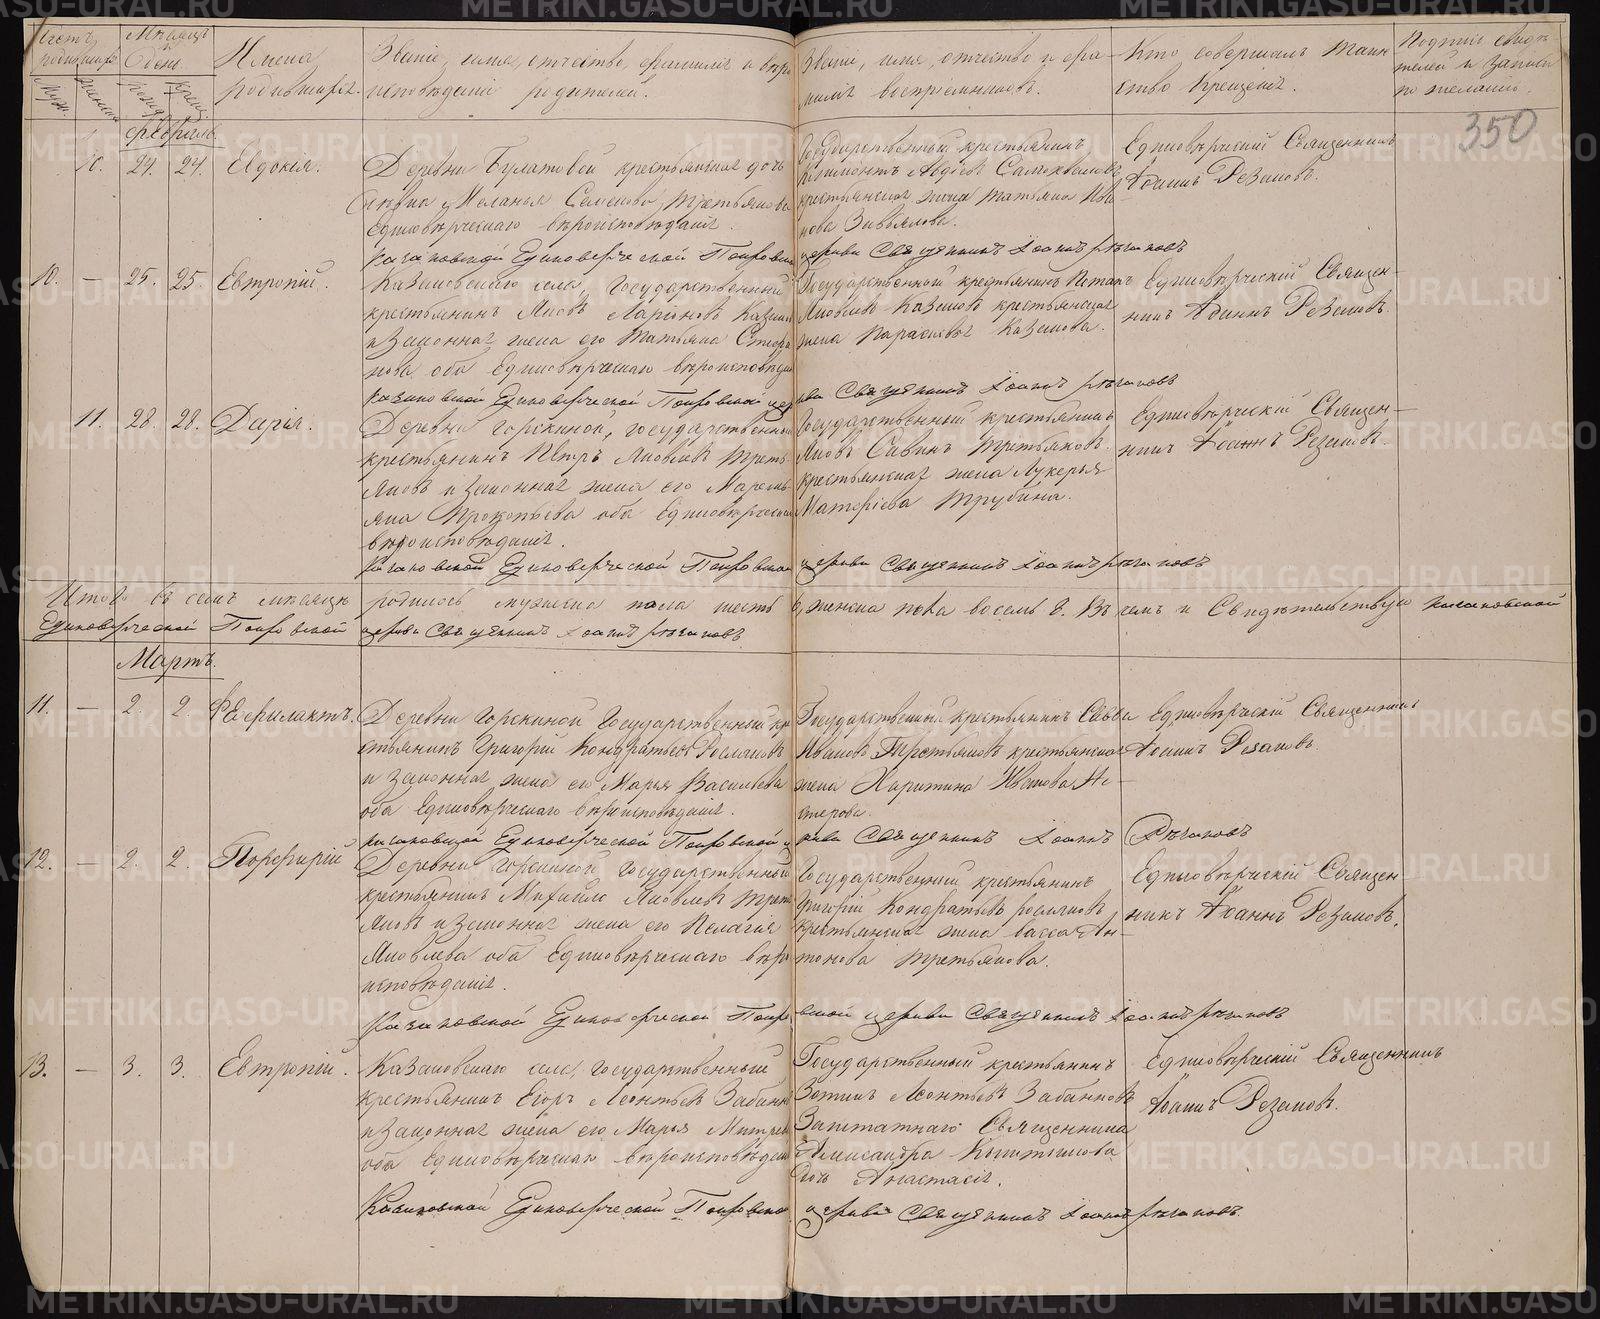 Счетъ родившихся
Муж.
Женска
Мѣсяцъ и день
рожд.
крещ.
Имена родившихся.
Званіе, имя, отчество, фамилія и вѣро
исповѣданіе родителей.
Званіе, имя, отчество и фа-
милія воспріемниковъ.
Кто совершалъ таин
ство крещенія.
Подпись свидѣ
телей и записи
по желанію.
350
Февраль.
10. 24. 24. Евдокія.
Деревни Булатовой крестьянская дочь
дѣвка Меланья Семенова Третьякова
Единовѣрческаго вѣроисповѣданія.
Государственный крестьянинъ
Авдѣевъ
крестьянская жена Татьяна Ива
нова Завьялова.
Единовѣрческій Священникъ
Іоаннъ Рѣзановъ.
Казаковской Единоверческой Покровской церкви Священникъ Іоаннъ Рѣзановъ
10. — 25. 25. Евтропій.
Казаковскаго села, государственный
крестьянинъ Яковъ Ларіоновъ Казаковъ
и законная жена его Татьяна Стефа
нова оба Единовѣрческаго вѣроисповѣданія
Государственный крестьянинъ Потапъ
Яковлевъ Казаковъ крестьянская
жена Параскевья Казакова.
Единовѣрческій Священ-
никъ Іоаннъ Рѣзановъ.
Казаковской Единоверческой Покровской церкви Священникъ Іоаннъ Рѣзановъ
11. 28. 28. Дарія.
Деревни Горскиной, государственный
крестьянинъ Петръ Яковлевъ Треть
яковъ и законная жена его Маремь
яна Прокопьева оба Единовѣрческаго
вѣроисповѣданія.
Государственный крестьянинъ
Яковъ Савинъ Третьяковъ.
крестьянская жена Лукерья
Матфіева Трубина.
Единовѣрческій Священ-
никъ Іоаннъ Рѣзановъ
Казаковской Единоверческой Покровской церкви Священникъ Іоаннъ Рѣзановъ
Итого въ семъ мѣсяцѣ родилось мужеска пола шесть 6, женска пола восемь 8. Въ чемъ и Свидѣтельствую Казаковской
Единоверческой Покровской церкви Священникъ Іоаннъ Рѣзановъ
Мартъ.
11. — 2. 2. Феофилактъ.
Деревни Горскиной Государственный кре
стьянинъ Григорій Кондратьевъ
и законная жена его Марья Васильева
оба Единовѣрческаго вѣроисповѣданія.
Государственный крестьянинъ Савва
Ивановъ Третьяковъ крестьянская
жена Харитина Иванова Не-
стерова.
Единовѣрческій Священникъ
Іоаннъ Рѣзановъ
Казаковской Единоверческой Покровской церкви Священникъ Іоаннъ Рѣзановъ
12. — 2. 2. Порфирій
Деревни Горскиной Государственный
крестьянинъ Михайло Яковлевъ Треть
яковъ и законная жена его Пелагія
Яковлева оба Единовѣрческаго вѣро
исповѣданія.
Государственный крестьянинъ
Григорій Кондратьевъ
крестьянская жена Васса Ан-
тонова Третьякова.
Единовѣрческій Священ
никъ Іоаннъ Рѣзановъ.
Казаковской Единоверческой Покровской церкви Священникъ Іоаннъ Рѣзановъ
13. — 3. 3. Евтропій.
Казаковскаго села, государственный
крестьянинъ Егоръ Леонтьевъ
и законная жена его Марья
оба Единовѣрческаго вѣроисповѣданія
Государственный крестьянинъ
Леонтьевъ
Заштатнаго Священника
Александра
дочь Анастасія.
Единовѣрческій Священникъ
Іоаннъ Рѣзановъ.
Казаковской Единоверческой Покровской церкви Священникъ Іоаннъ Рѣзановъ.
METRIKI.GASO-URAL.RU